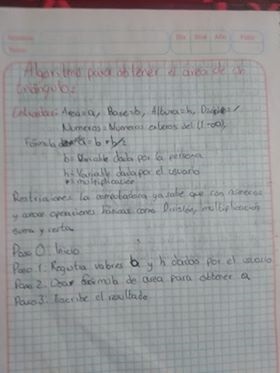 Algoritmo para obtener el area de un
triangulo
Entradas: Area=a, Base=b, Altura=h, Divición=/
Numeros = Numeros enteros del (1-∞),
Formula a= b*h/2
b= Variable dada por la persona
h= Variable dada por el usuario
*= multiplicación
Restricciones la computadora ya sabe que son numeros
y operaciones basicas como División, multiplicación
suma y resta.
Paso 0: Inicio
Paso 1: Registra valores b y h dados por el usuario
Paso 2: Usar formula de area para obtener a
Paso 3: Escribe el resultado